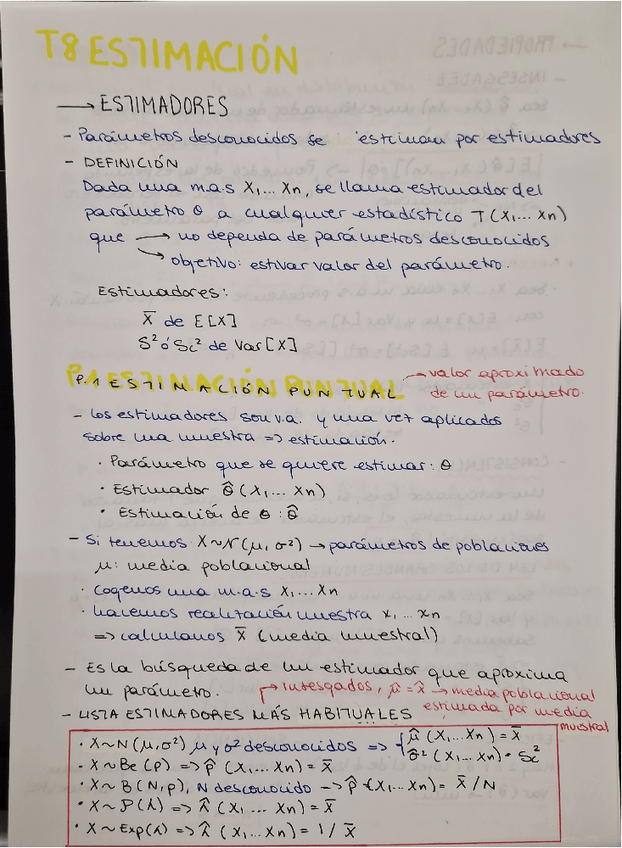 T8 ESTIMACIÓN
→ ESTIMADORES
- Parámetros desconocidos se estiman por estimadores
- DEFINICIÓN
Dada una m.a.s X₁... Xn, se llama estimador del
parámetro θ a cualquier estadístico T(X₁... Xn)
que → no dependa de parámetros desconocidos
↳ objetivo: estivar valor del parámetro.
Estimadores:
X̄ de E[X]
S² ó Sc² de Var[X]
P.1 ESTIMACIÓN PUNTUAL → valor aproximado
de un parámetro.
- los estimadores son v.a. y una vez aplicados
sobre una muestra => estimación.
· Parámetro que se quiere estimar: θ
· Estimador θ̂ (X₁... Xn)
· Estimación de θ : θ̂
- Si tenemos X~N(μ, σ²) → parámetros de poblaciones
μ: media poblacional
· Cogemos una m.a.s X₁... Xn
· hacemos realización muestra x₁... xn
=> calculamos X̄ (media muestral)
- Es la búsqueda de un estimador que aproxima
un parámetro.
→ Insesgados, μ̂ = x̄ → media poblacional
estimada por media
muestral
- LISTA ESTIMADORES MÁS HABITUALES
· X~N(μ,σ²) μ y σ² desconocidos => { μ̂ (X₁... Xn) = X̄
σ̂² (X₁... Xn) = Sc²
· X~Be(p) => p̂ (X₁... Xn) = X̄
· X~B(N,p), N desconocido → p̂ (X₁... Xn) = X̄/N
· X~P(λ) => λ̂ (X₁... Xn) = X̄
· X~Exp(λ) => λ̂ (X₁... Xn) = 1/X̄